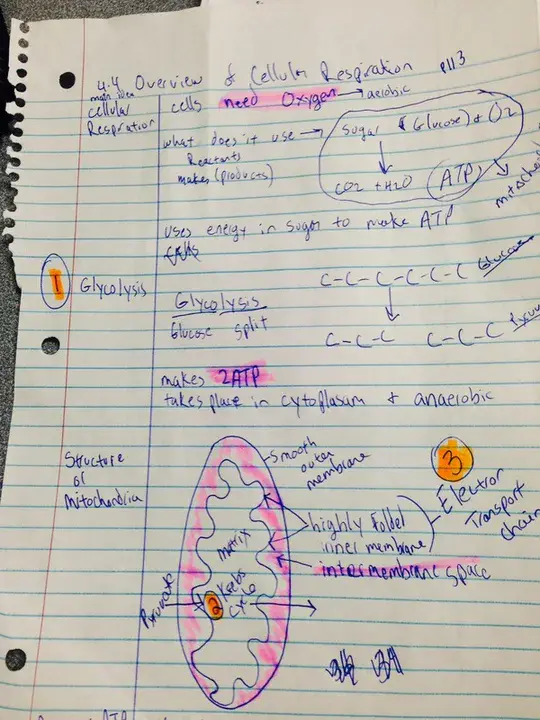 4.4 Overview of Cellular Respiration p113
main idea
cellular
Respiration
cells need Oxygen → aerobic
what does it use →
Reactants
makes (products)
Sugar (Glucose) + O2
CO2 + H2O ATP
uses energy in sugar to make ATP
1 Glycolysis
Glycolysis
Glucose split
C-C-C-C-C-C Glucose
C-C-C C-C-C
makes 2ATP
takes place in cytoplasum + anaerobic
Structure
of
Mitochondria
smooth
outer
membrane
3
Electron
Transport
chain
highly folded
inner membrane
intermembrane space
matrix
Krebs
cycle
2
Pyruvate